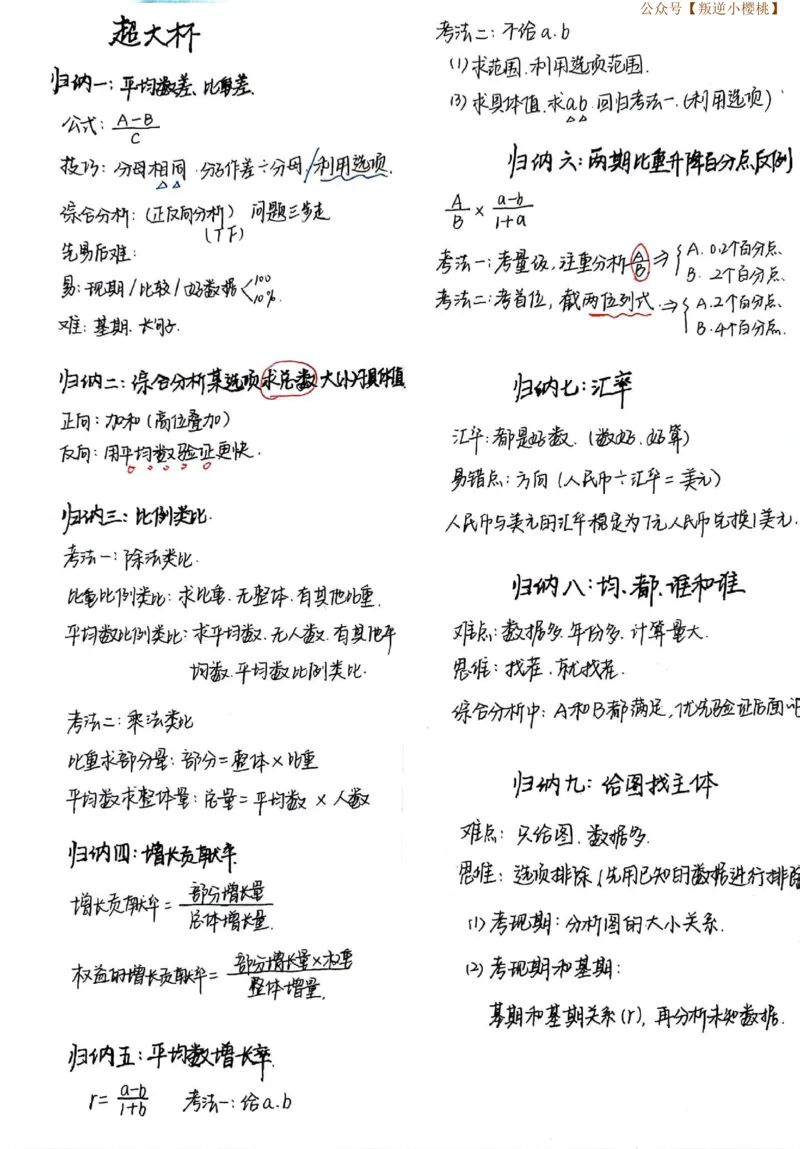 公众号【叛逆小樱桃】
超大杯
归纳一：平均数差、比重差.
公式：A-B/C
技巧：分母相同 分子作差÷分母/利用选项.
综合分析：(正反向分析) 问题三步走
(T F)
先易后难：
易：现期/比较/好数据<100 10%.
难：基期. 长句子.
归纳二：综合分析某选项求总数大(小)于具体值
正向：加和(高位叠加)
反向：用平均数验证更快.
归纳三：比例类比.
考法一：除法类比.
比重比例类比：求比重.无整体.有其他比重.
平均数比例类比：求平均数.无人数.有其他平
均数.平均数比例类比.
考法二：乘法类比
比重求部分量：部分=整体×比重
平均数求整体量：总量=平均数×人数
归纳四：增长贡献率
增长贡献率=部分增长量/总体增长量.
权益的增长贡献率=部分增长量×权重/整体增量.
归纳五：平均数增长率.
r=a-b/1+b 考法一：给a.b
考法二：不给a.b
(1)求范围.利用选项范围.
(3)求具体值.求a.b.回归考法一.(利用选项)
归纳六：两期比重升降百分点反例
A/B×a-b/1+a
考法一：考量级，注重分析A/B⇒{A.0.2个百分点.
B. 2个百分点.
考法二：考首位，截两位列式.⇒{A.2个百分点.
B.4个百分点.
归纳七：汇率
汇率：都是好数.(数好.好算)
易错点：方向(人民币÷汇率=美元)
人民币与美元的汇率稳定为7元人民币兑换1美元.
归纳八：均、都、谁和谁
难点：数据多.年份多.计算量大.
思维：找茬.就找茬.
综合分析中：A和B都满足，优先验证后面吧
归纳九：给图找主体
难点：只给图.数据多.
思维：选项排除(先用已知的数据进行排除
(1)考现期：分析图的大小关系.
(2)考现期和基期：
基期和基期关系(r)，再分析未知数据.